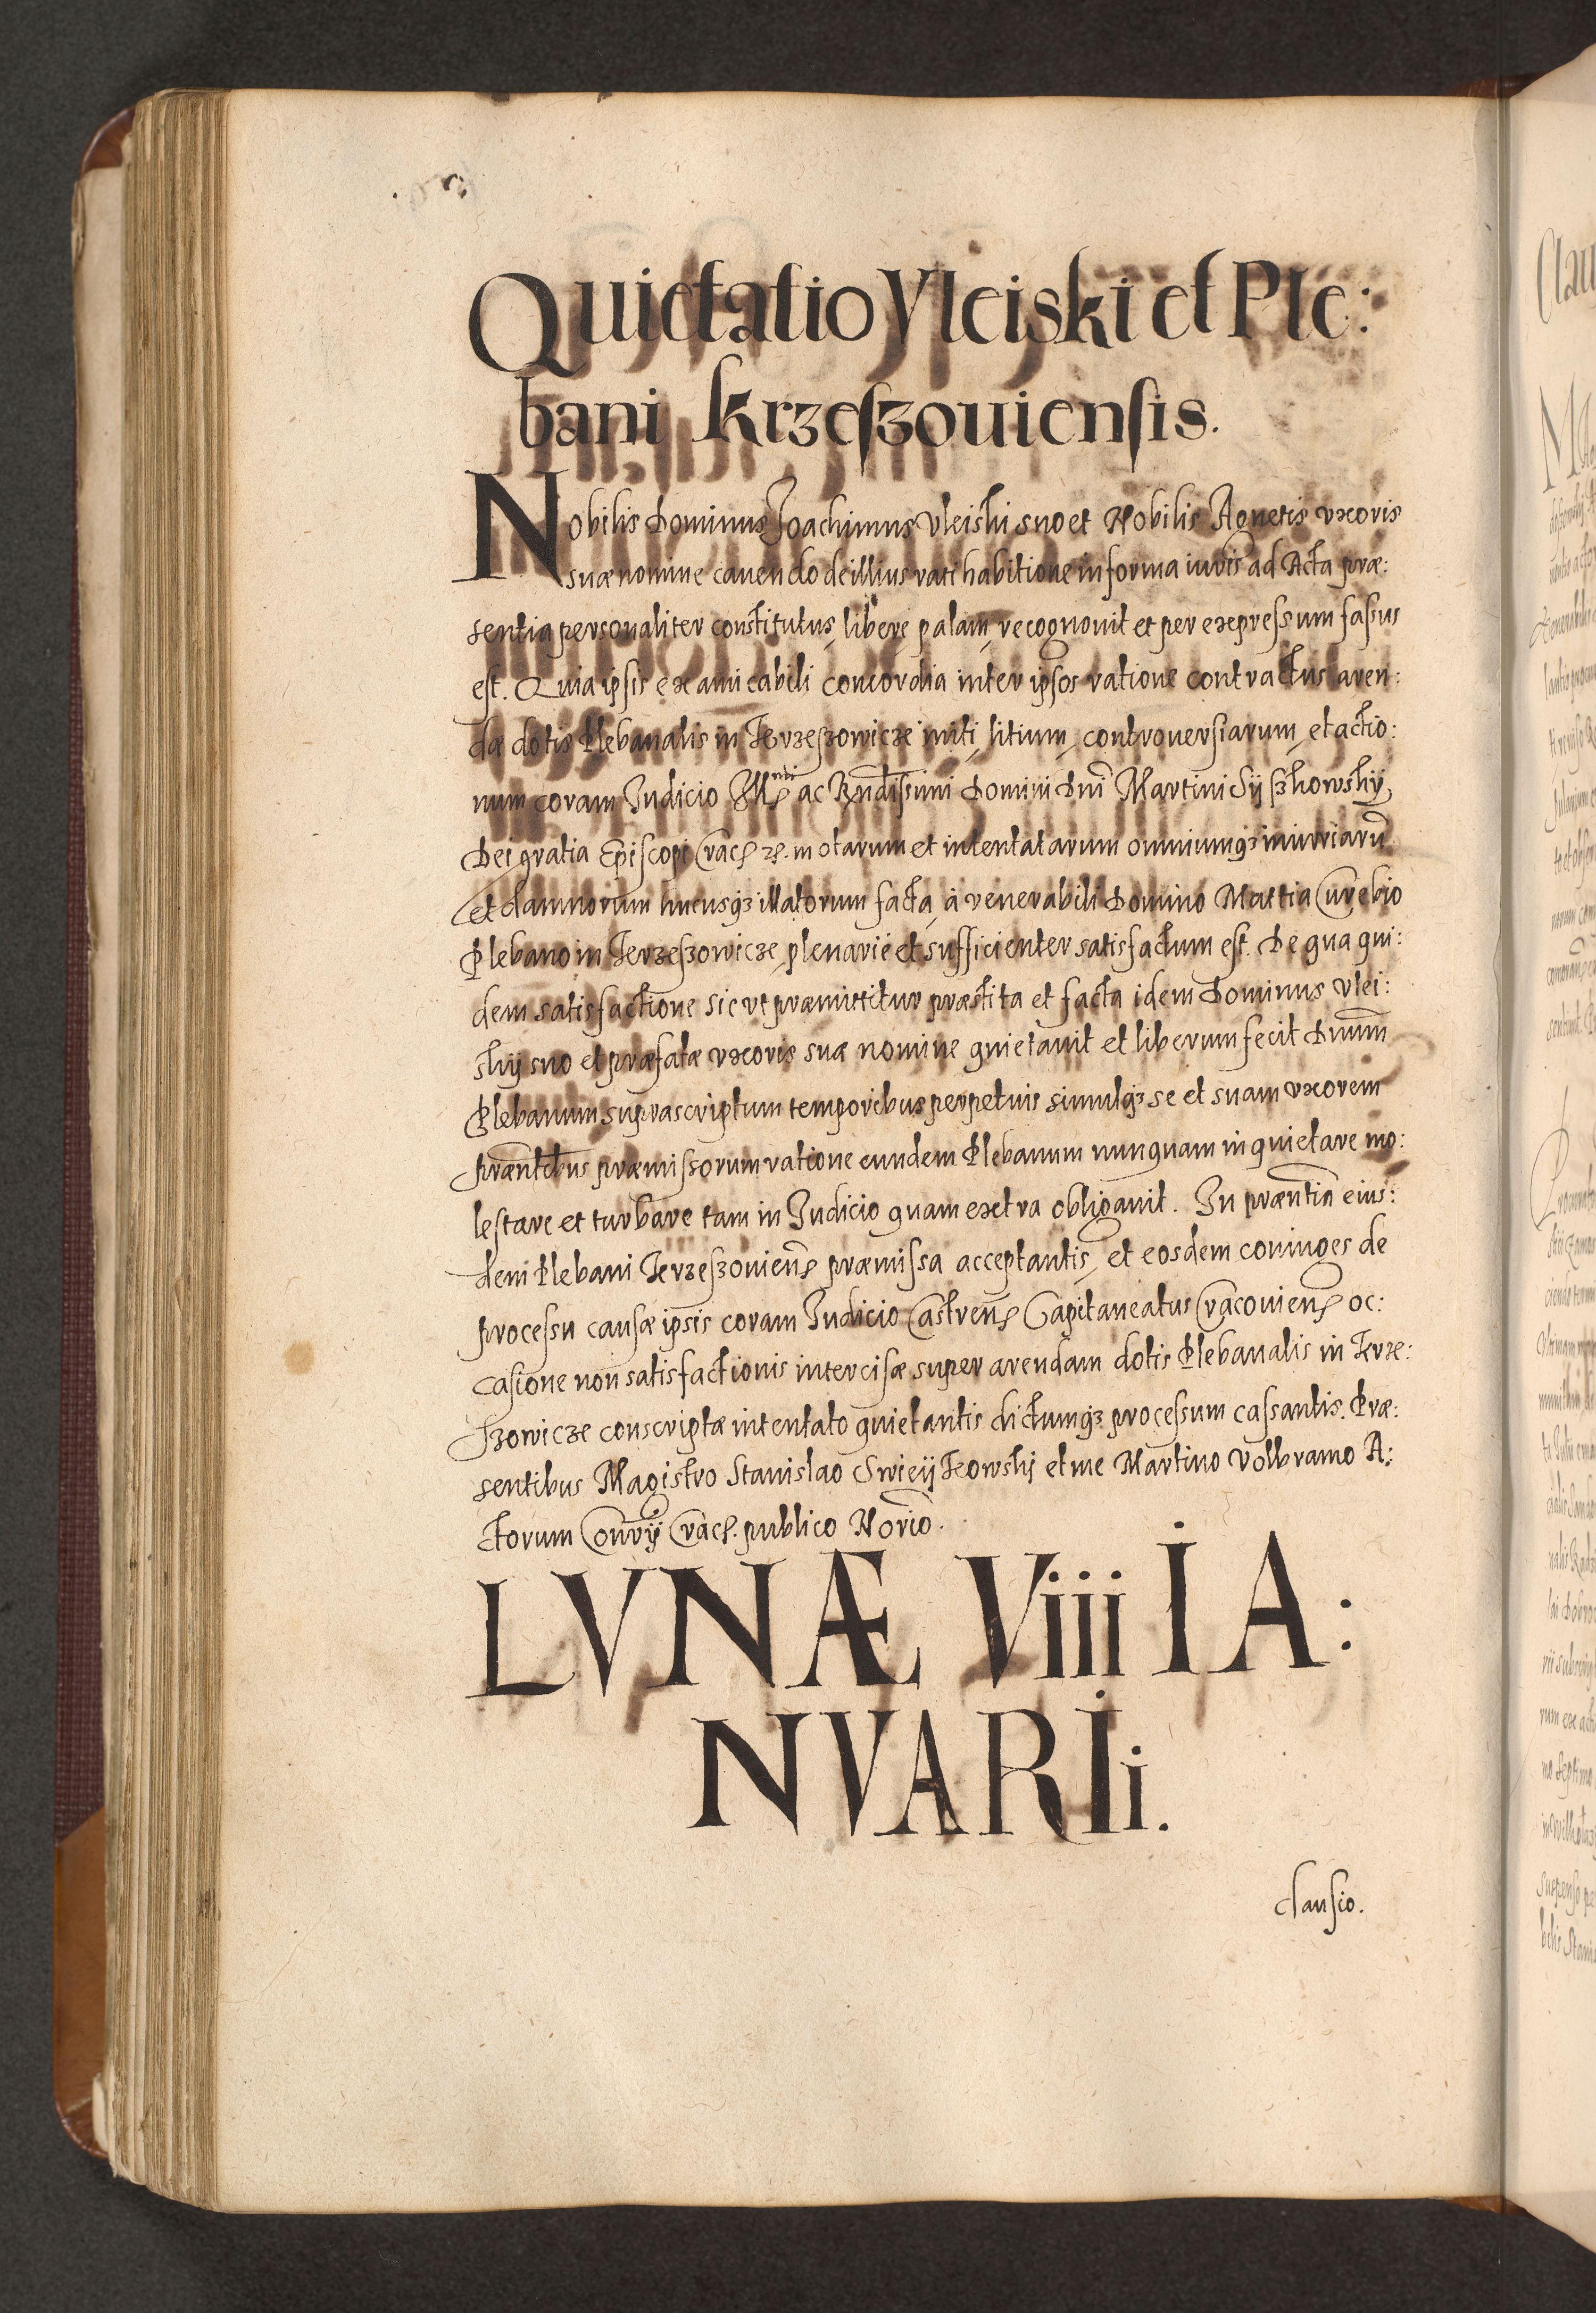 Quietatio Vleiski et Ple:
bani Krzeszouiensis.
Nobilis Dominus Joachimus Vleiski suo et Nobilis Agnetis uxoris
suæ nomine cauendo de illius ratihabitione in forma iuris ad Acta præ:
sentia personaliter constitutus, libere palam, recognouit et per expressum fassus
est. Quia ipsis ex amicabili concordia inter ipsos ratione contractus aren:
dæ dotis Plebanalis in Krzeszowicze initi, litium, controuersiarum, et actio:
num coram Judicio ac Rndissimi Domini Dni Martini Sijszkowskÿ
Dei gratia Episcopi Crac. motarum et intentatarum omniumq3 iniuriarũ
et damnorum hucusq3 illatorum facta, à venerabili Domino Mattia Curebio
Plebano in Krzeszowicze, plenariè et sufficienter satisfactum est. De qua qui:
dem satisfactione sic vt præmittitur præstita et facta idem Dominus Vlei:
skij suo et præfatæ uxoris suæ nomine quietauit et liberum fecit Dnum
Plebanum suprascriptum temporibus perpetuis simulq3 se et suam uxorem
præntibus præmissorum ratione eundem Plebanum nunquam inquietare mo:
lestare et turbare tam in Judicio quam extra obligauit. In præntia eius:
dem Plebani Krzeszouien præmissa acceptantis, et eosdem coniuges de
processu causæ ipsis coram Judicio Castren Capitaneatus Cracouien oc:
casione non satisfactionis intercisæ super arendam dotis Plebanalis in Krze:
szowicze conscriptæ intentato quietantis dictumq3 processum cassantis. Præ:
sentibus Magistro Stanislao Swieijkowskij et me Martino Volbramo A:
ctorum Conrÿ Crac. publico Norio.
LVNÆ Viii IA:
NVARIi.
clausio.